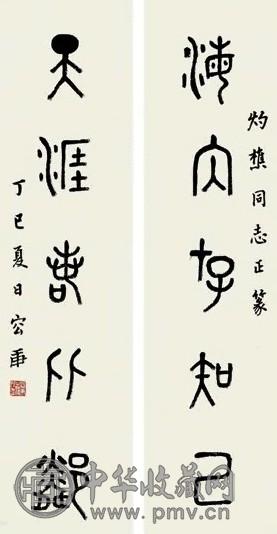 灼樵同志正篆
海內存知己
天涯若比鄰
丁巳夏日容庚
中华收藏网
www.pmv.cn